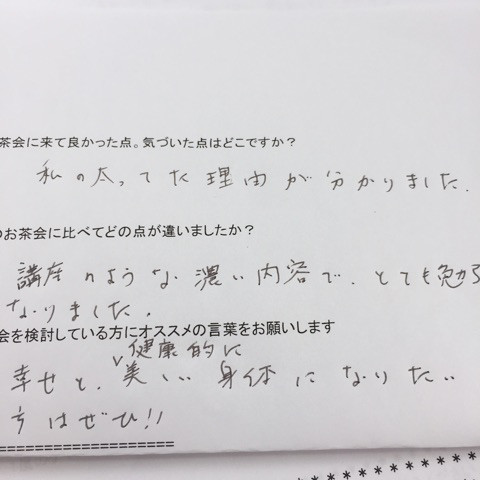 茶会に来て良かった点。気づいた点はどこですか？
私の太ってた理由が分かりました.
のお茶会に比べてどの点が違いましたか？
講座のような濃い内容で、とても勉
なりました.
会を検討している方にオススメの言葉をお願いします
健康的に
幸せと、美しい身体になりたい
方はぜひ!!
====================
**********